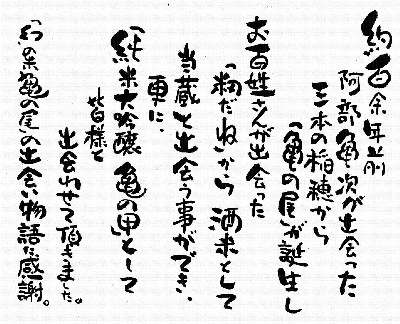 約百余年前
阿部亀次が出会った
三本の稲穂から
「亀の尾」が誕生し
お百姓さんが出会った
「籾だね」から酒米として
当蔵と出会う事ができ、
更に、
「純米大吟醸亀の甲」として
皆様と
出会わせて頂きました。
「幻の米亀の尾」の出会い物語に感謝。